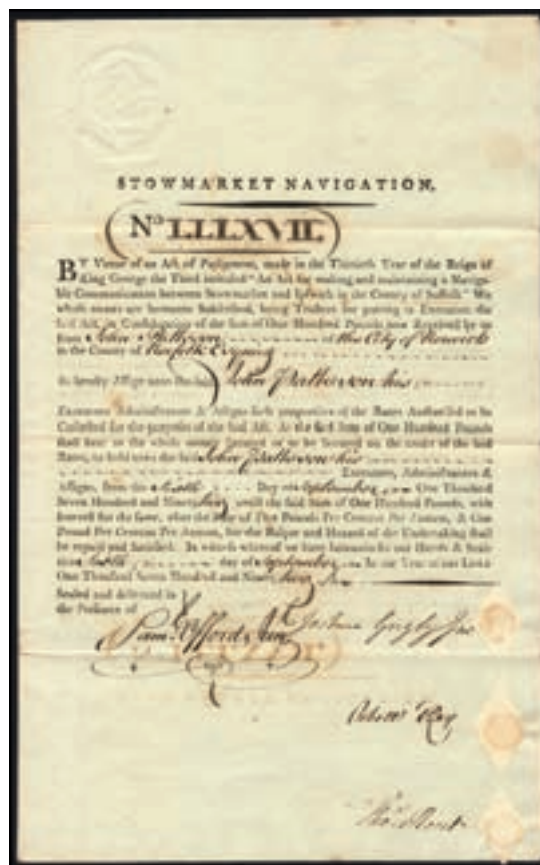 STOWMARKET NAVIGATION.
No. LLLXVII.
BY Virtue of an Act of Parliament, made in the Thirtieth Year of the Reign of
King George the Third intituled "An Act for making and maintaining a Naviga-
ble Communication between Stowmarket and Ipswich in the County of Suffolk" We
whose names are hereunto Subscribed, being Trustees for putting in Execution the
said Act, in Consideration of the Sum of One Hundred Pounds now Received by us
from John Patteson of the City of Norwich
in the County of Norfolk Esquire
do hereby Assign unto the said John Patteson his
Executors Administrators & Assigns such proportion of the Rates Authorised to be
Collected for the purposes of the said Act. As the said Sum of One Hundred Pounds
shall bear to the whole money secured or to be Secured on the credit of the said
Rates, to hold unto the said John Patteson his
Executors, Administrators &
Assigns, from the Day of September One Thousand
Seven Hundred and Ninety until the said Sum of One Hundred Pounds, with
Interest for the same, after the Rate of Five Pounds Per Centum Per Annum, & One
Pound Per Centum Per Annum, for the Risque and Hazard of the Undertaking shall
be repaid and satisfied. In witness whereof we have hereunto set our Hands & Seals
this day of September In the Year of our LORD
One Thousand Seven Hundred and Ninety
Sealed and delivered in
the Presence of